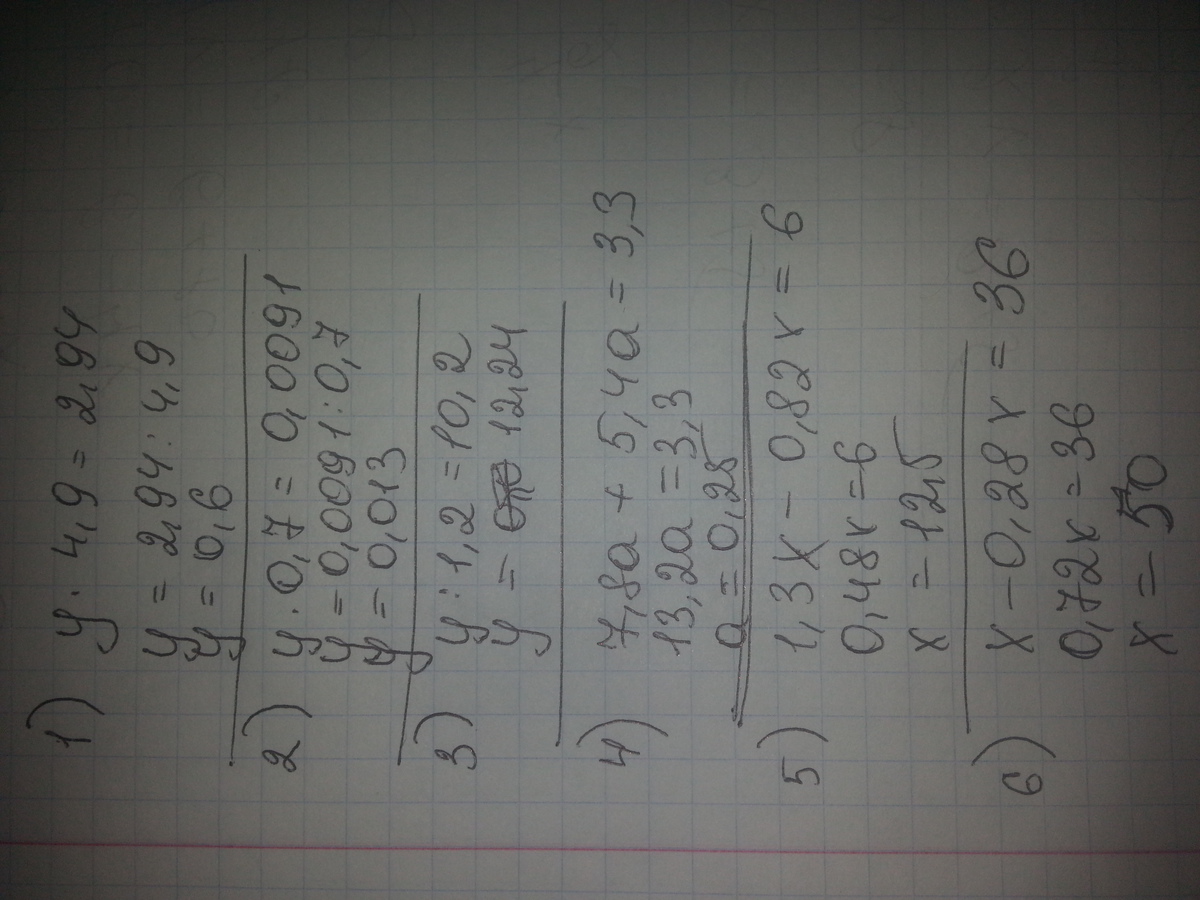 1) y · 4,9 = 2,94
y = 2,94 : 4,9
y = 0,6
2) y · 0,7 = 0,0091
y = 0,0091 : 0,7
y = 0,013
3) y : 1,2 = 10,2
y = 12,24
4) 7,8a + 5,4a = 3,3
13,2a = 3,3
a = 0,25
5) 1,3x - 0,82x = 6
0,48x = 6
x = 12,5
6) x - 0,28x = 36
0,72x = 36
x = 50